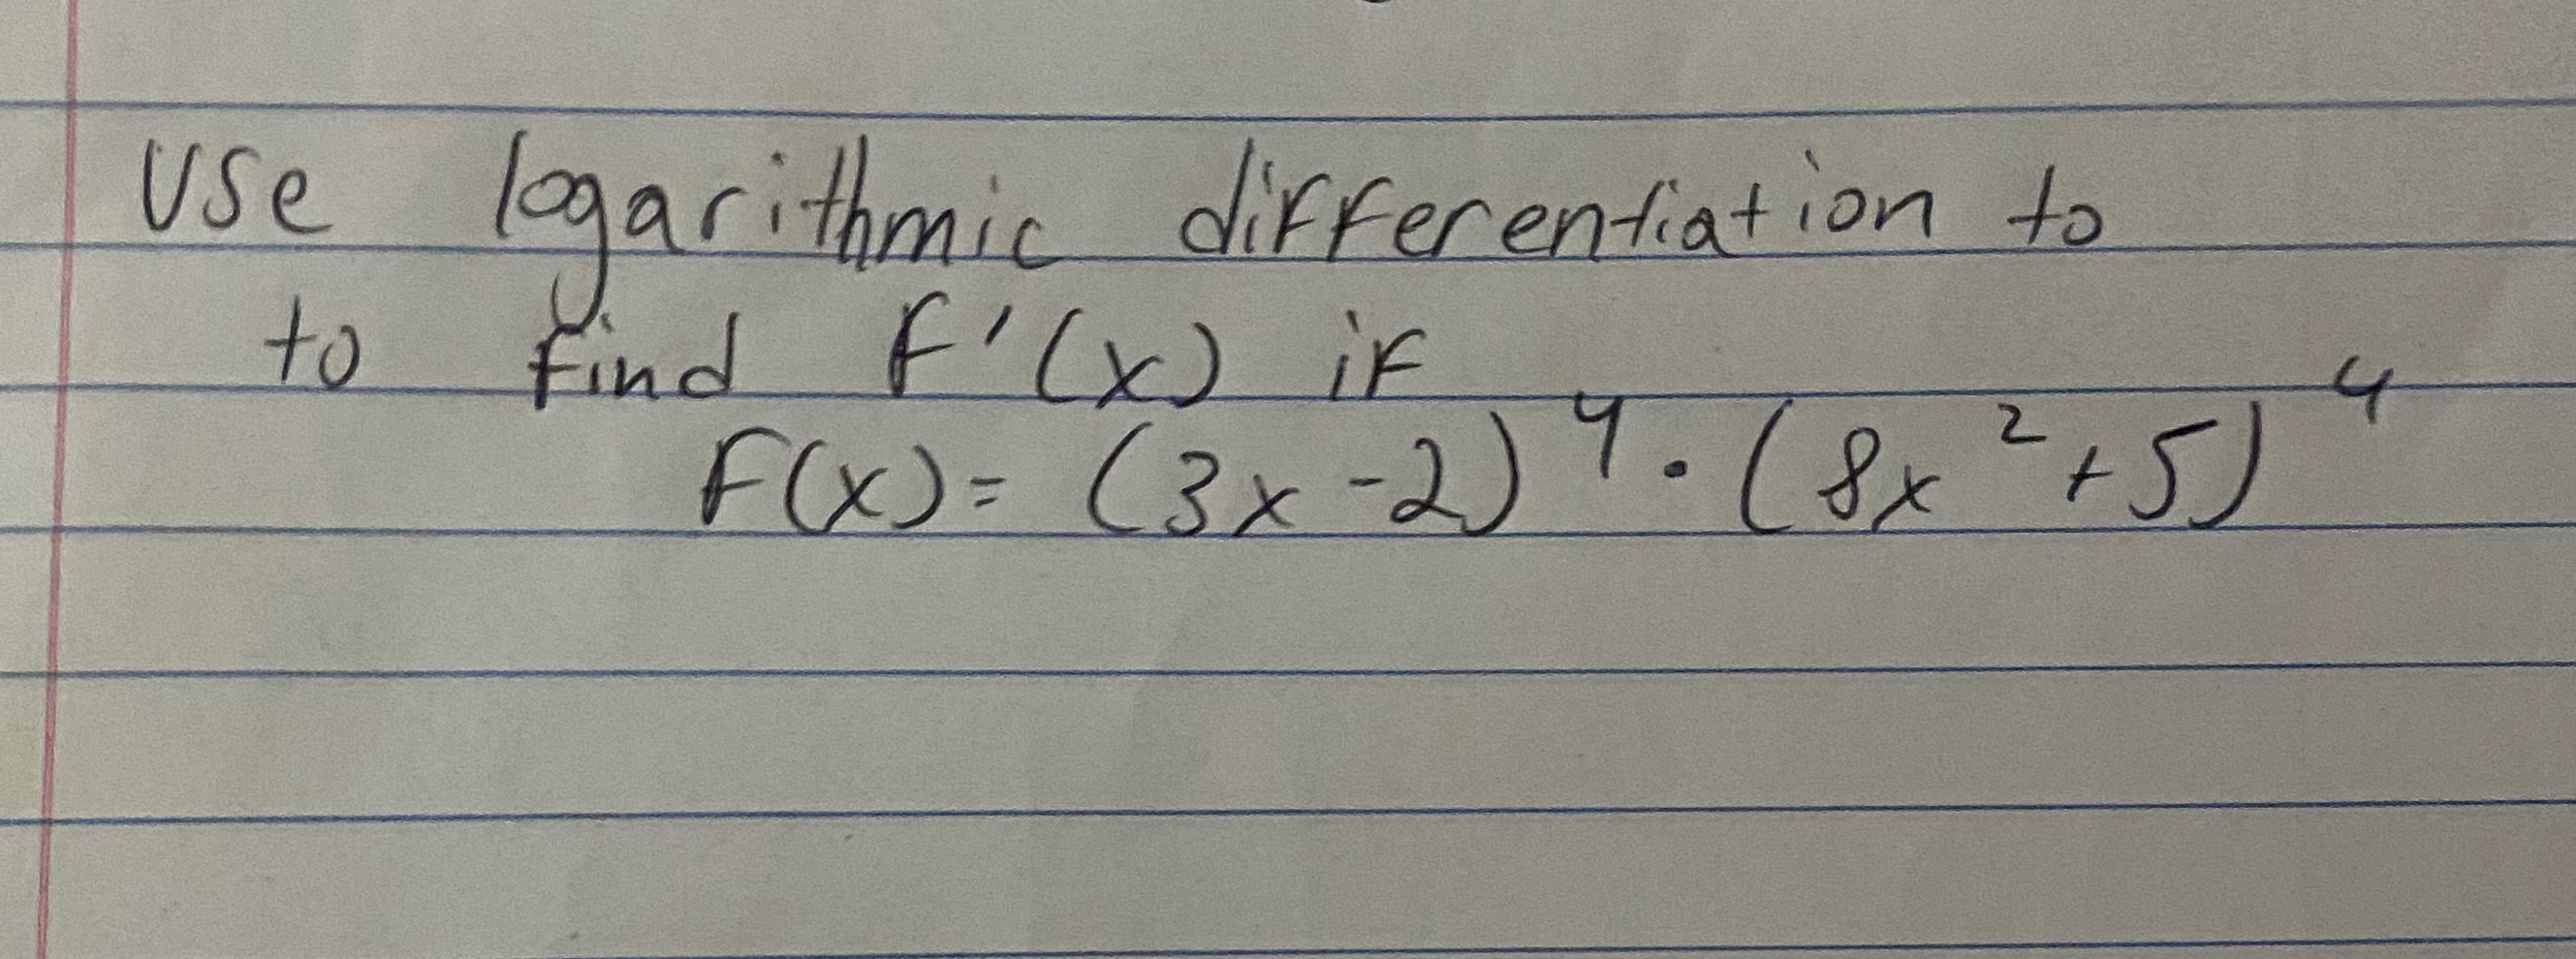 Use logarithmic differentiation to
to find f'(x) if
f(x) = (3x - 2)⁴ · (8x² + 5)⁴